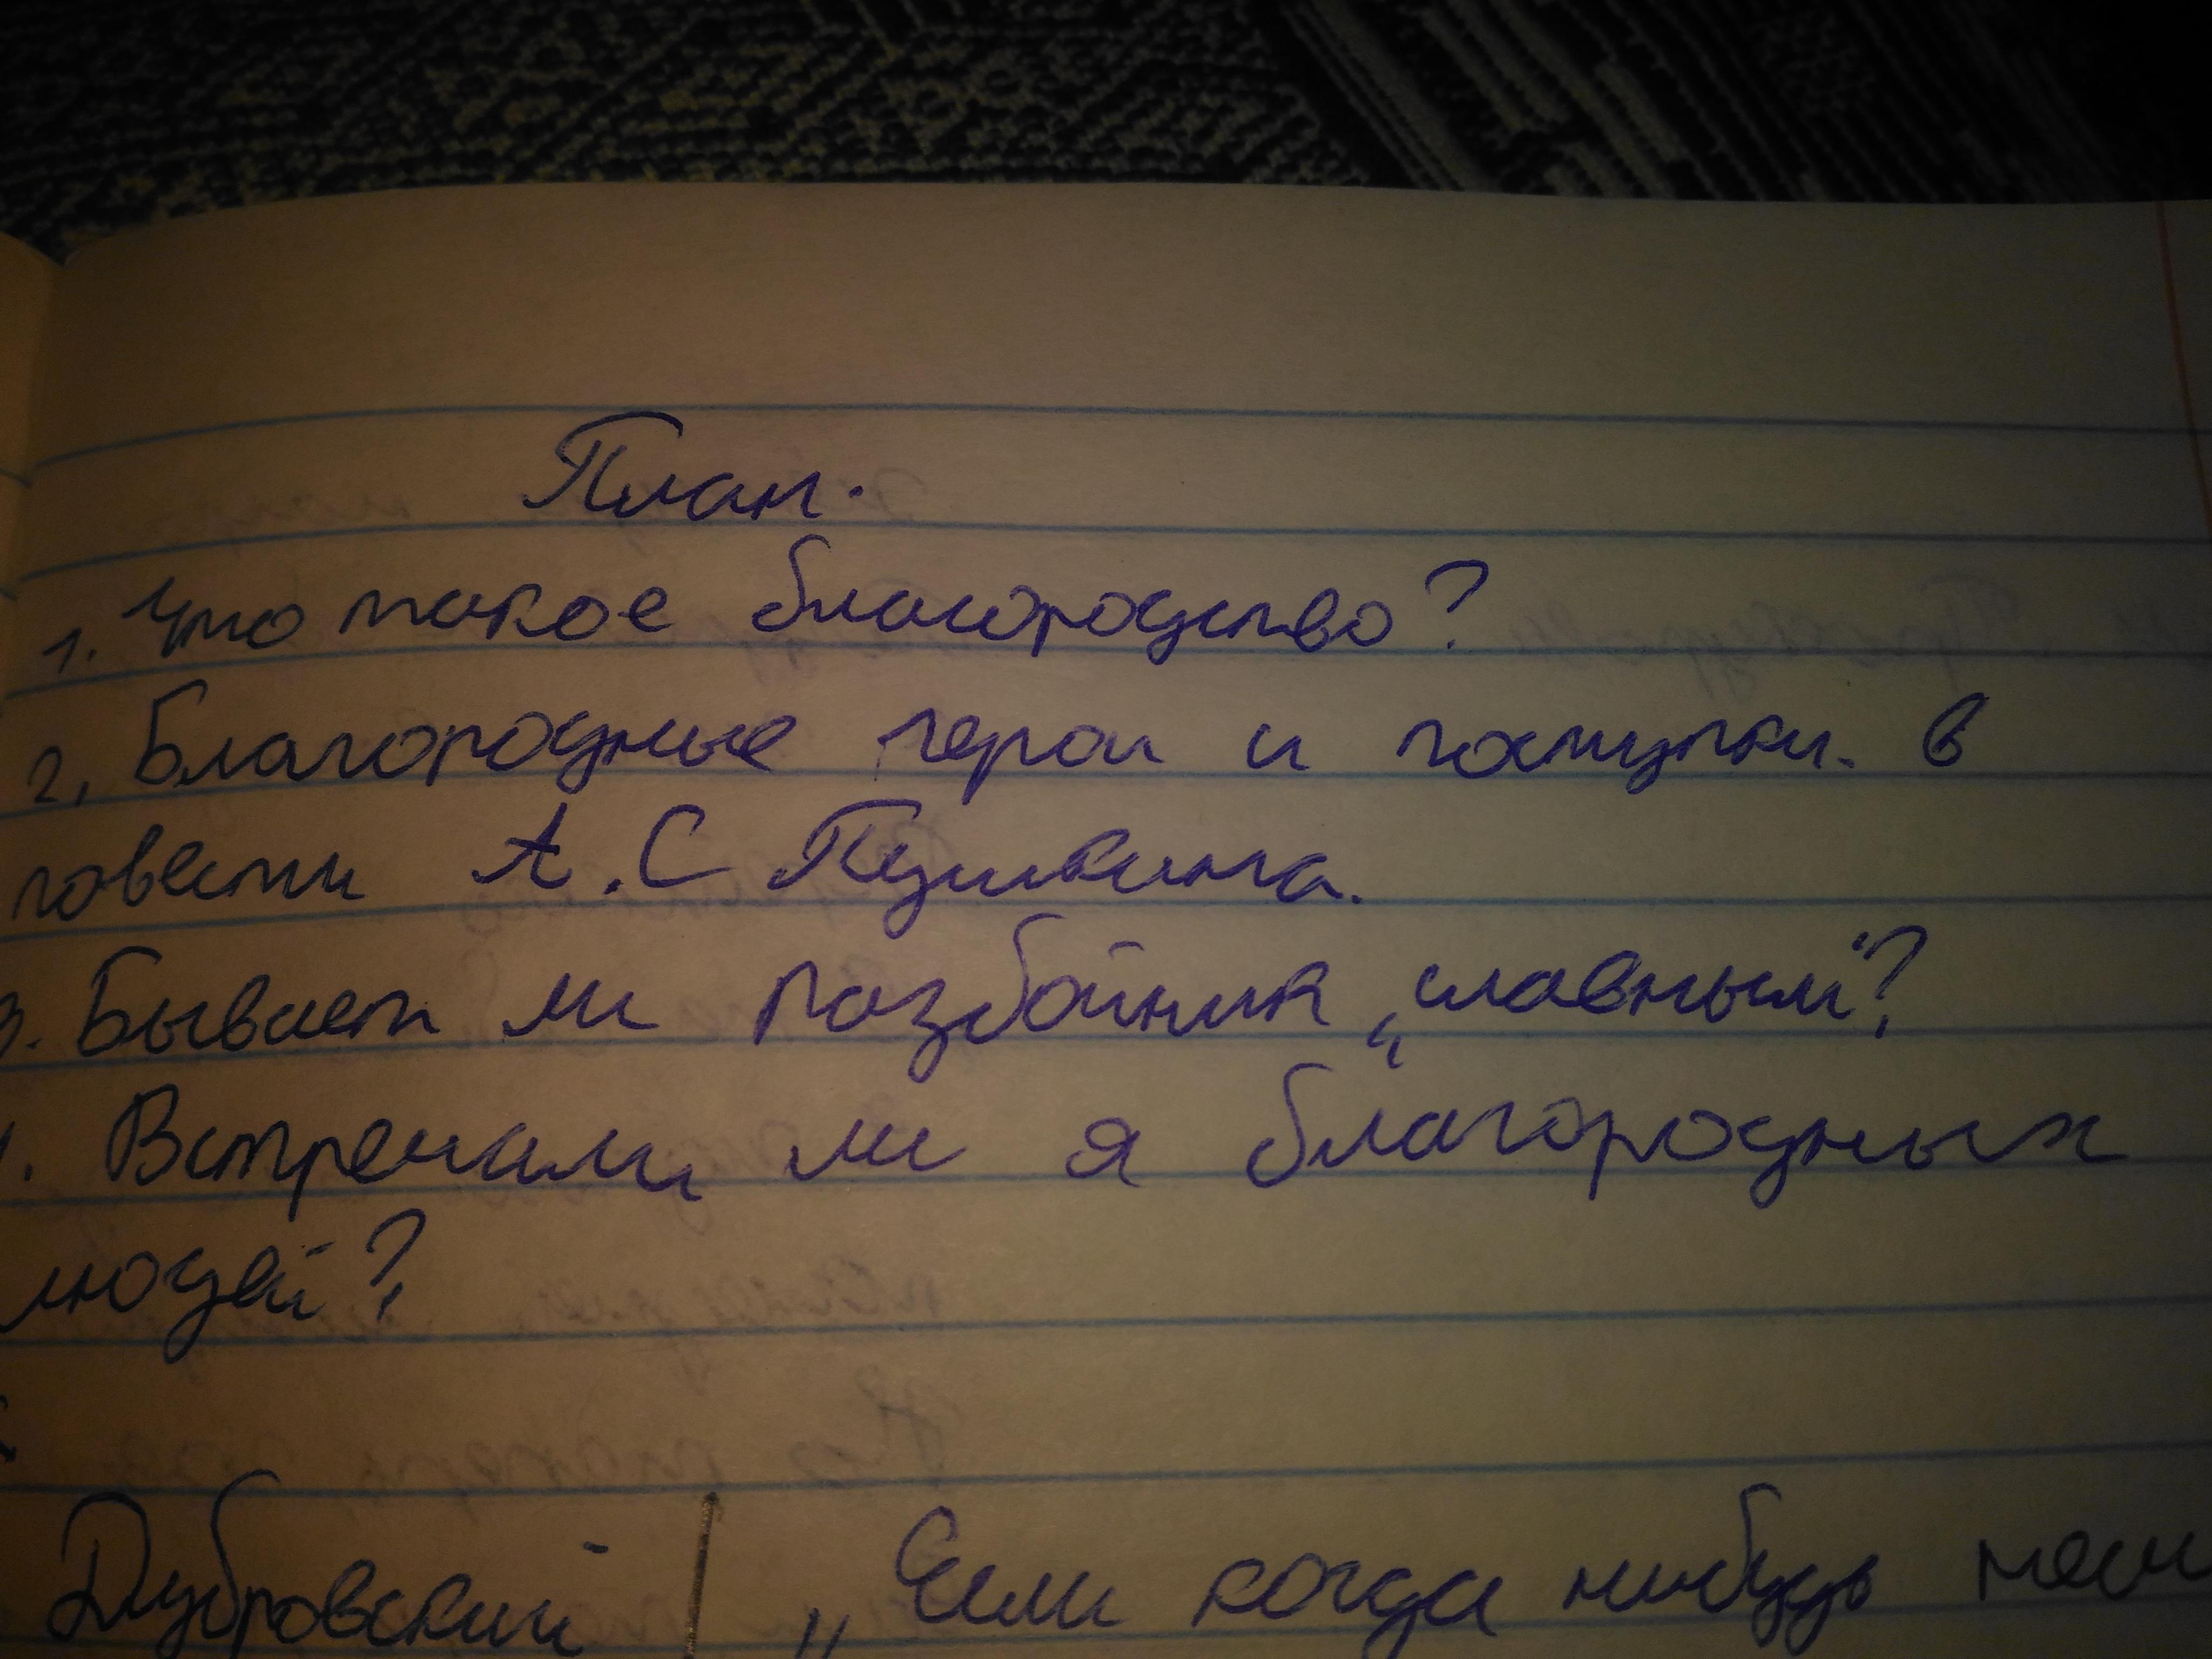 План.
1. Что такое благородство?
2. Благородные герои и поступки. в
повести А.С Пушкина.
3. Бывает ли разбойник „славным"?
. Встречали ли я благородных
людей?
Дубровский „Если когда нибудь